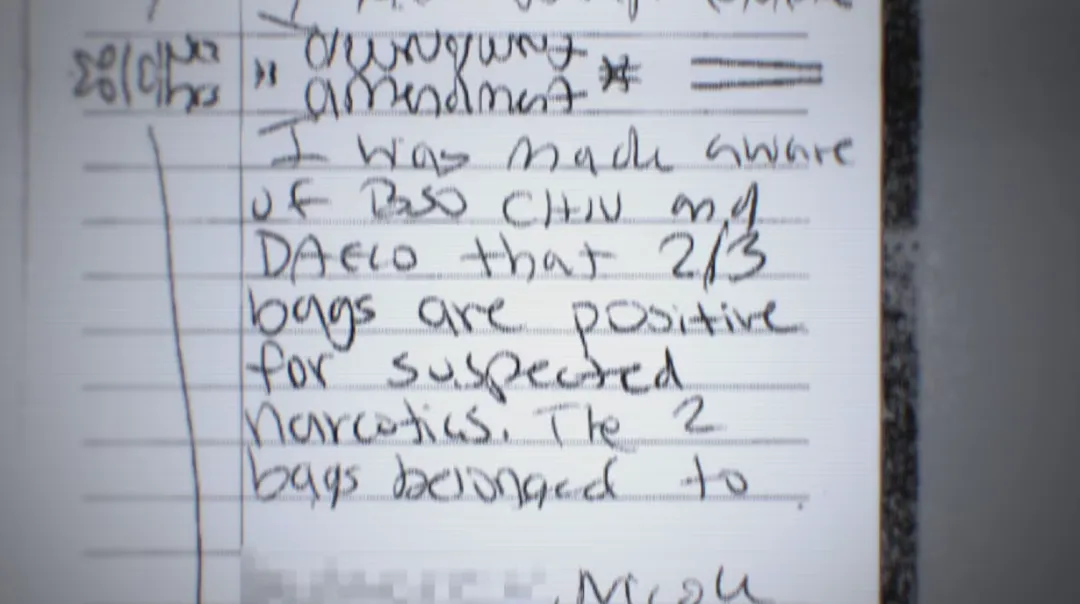 hrs
amendment *
I was made aware
of BSO CHIU and
DAELO that 2/3
bags are positive
for suspected
narcotics. The 2
bags belonged to